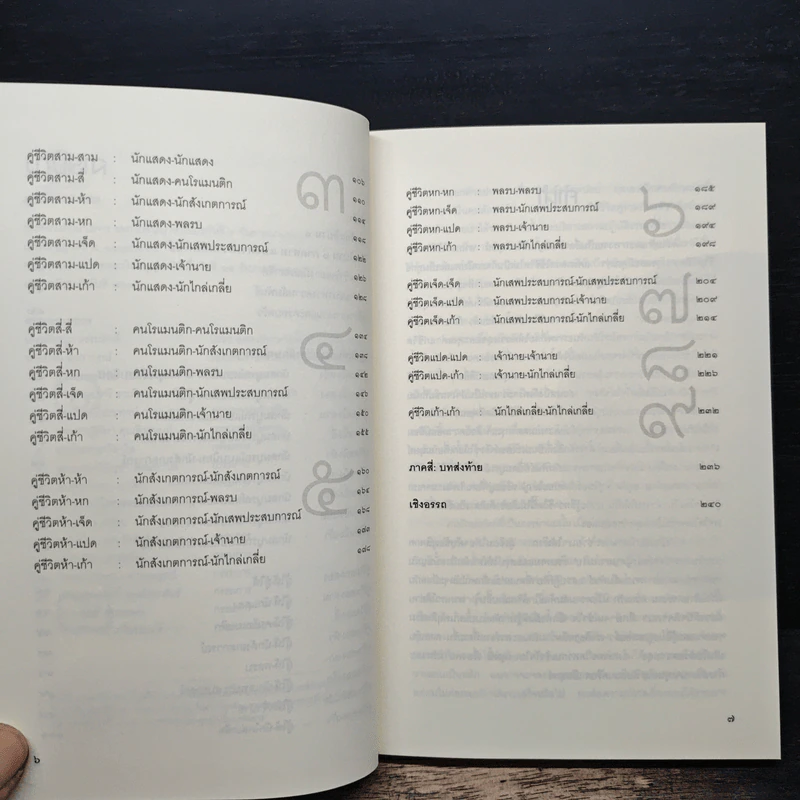 คู่ชีวิตสาม-สาม : นักแสดง-นักแสดง ๑๐๖
คู่ชีวิตสาม-สี่ : นักแสดง-คนโรแมนติก ๑๑๐
คู่ชีวิตสาม-ห้า : นักแสดง-นักสังเกตการณ์ ๑๑๔
คู่ชีวิตสาม-หก : นักแสดง-พลรบ ๑๑๘
คู่ชีวิตสาม-เจ็ด : นักแสดง-นักเสพประสบการณ์ ๑๒๒
คู่ชีวิตสาม-แปด : นักแสดง-เจ้านาย ๑๒๖
คู่ชีวิตสาม-เก้า : นักแสดง-นักไกล่เกลี่ย ๑๒๘
๓
คู่ชีวิตสี่-สี่ : คนโรแมนติก-คนโรแมนติก ๑๓๔
คู่ชีวิตสี่-ห้า : คนโรแมนติก-นักสังเกตการณ์ ๑๓๘
คู่ชีวิตสี่-หก : คนโรแมนติก-พลรบ ๑๔๒
คู่ชีวิตสี่-เจ็ด : คนโรแมนติก-นักเสพประสบการณ์ ๑๔๖
คู่ชีวิตสี่-แปด : คนโรแมนติก-เจ้านาย ๑๕๐
คู่ชีวิตสี่-เก้า : คนโรแมนติก-นักไกล่เกลี่ย ๑๕๕
๔
คู่ชีวิตห้า-ห้า : นักสังเกตการณ์-นักสังเกตการณ์ ๑๖๐
คู่ชีวิตห้า-หก : นักสังเกตการณ์-พลรบ ๑๖๔
คู่ชีวิตห้า-เจ็ด : นักสังเกตการณ์-นักเสพประสบการณ์ ๑๖๘
คู่ชีวิตห้า-แปด : นักสังเกตการณ์-เจ้านาย ๑๗๓
คู่ชีวิตห้า-เก้า : นักสังเกตการณ์-นักไกล่เกลี่ย ๑๗๘
๕
๖
คู่ชีวิตหก-หก : พลรบ-พลรบ ๑๘๕
คู่ชีวิตหก-เจ็ด : พลรบ-นักเสพประสบการณ์ ๑๘๙
คู่ชีวิตหก-แปด : พลรบ-เจ้านาย ๑๙๔
คู่ชีวิตหก-เก้า : พลรบ-นักไกล่เกลี่ย ๑๙๘
๖
คู่ชีวิตเจ็ด-เจ็ด : นักเสพประสบการณ์-นักเสพประสบการณ์ ๒๐๔
คู่ชีวิตเจ็ด-แปด : นักเสพประสบการณ์-เจ้านาย ๒๐๙
คู่ชีวิตเจ็ด-เก้า : นักเสพประสบการณ์-นักไกล่เกลี่ย ๒๑๔
๗
คู่ชีวิตแปด-แปด : เจ้านาย-เจ้านาย ๒๒๑
คู่ชีวิตแปด-เก้า : เจ้านาย-นักไกล่เกลี่ย ๒๒๖
๘
คู่ชีวิตเก้า-เก้า : นักไกล่เกลี่ย-นักไกล่เกลี่ย ๒๓๒
๙
ภาคสี่: บทส่งท้าย ๒๓๖
เชิงอรรถ ๒๔๐
๗